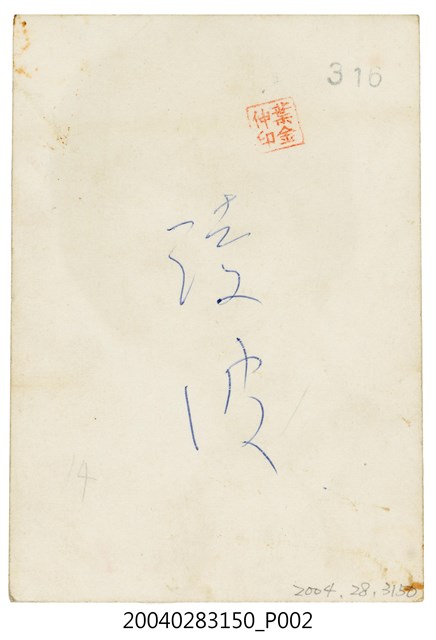 316
葉金
伸印
凌
波
2004.28.3150
20040283150_P002